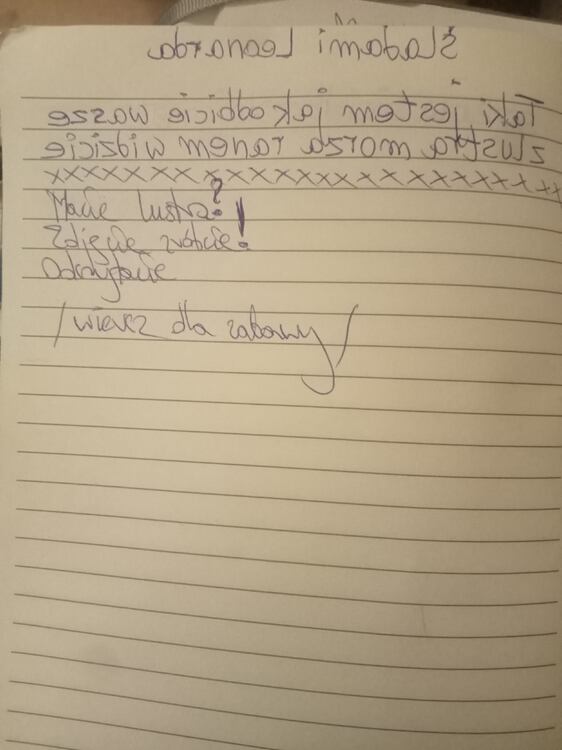 Śladami Leonarda
Taki jestem jak odbicie wasze
z lustra morda ranem widzicie
xxxxxxxxxxxxxxxxxxxxxxxxx
Macie lustra?
Zdjęcie zróbcie!
Odczytacie
/wiersz dla zabawy/